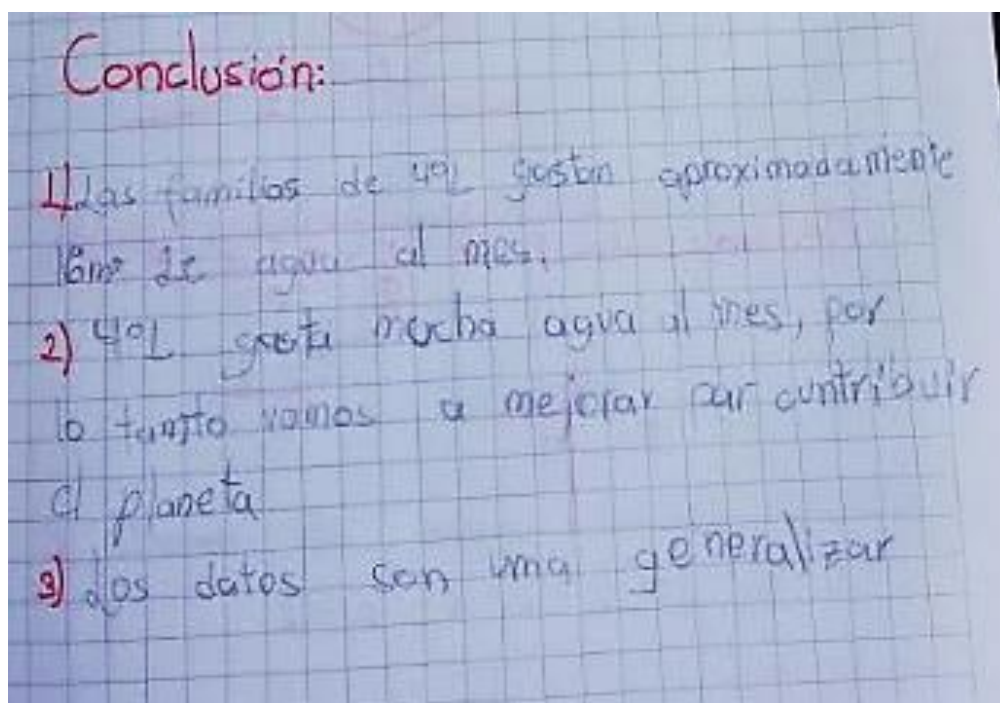 Conclusión:
1) Las familias de 4ºL gastan aproximadamente
16m³ de agua al mes.
2) 4ºL gasta mucha agua al mes, por
lo tanto vamos a mejorar par contribuir
al planeta
3) Los datos son una generalizar